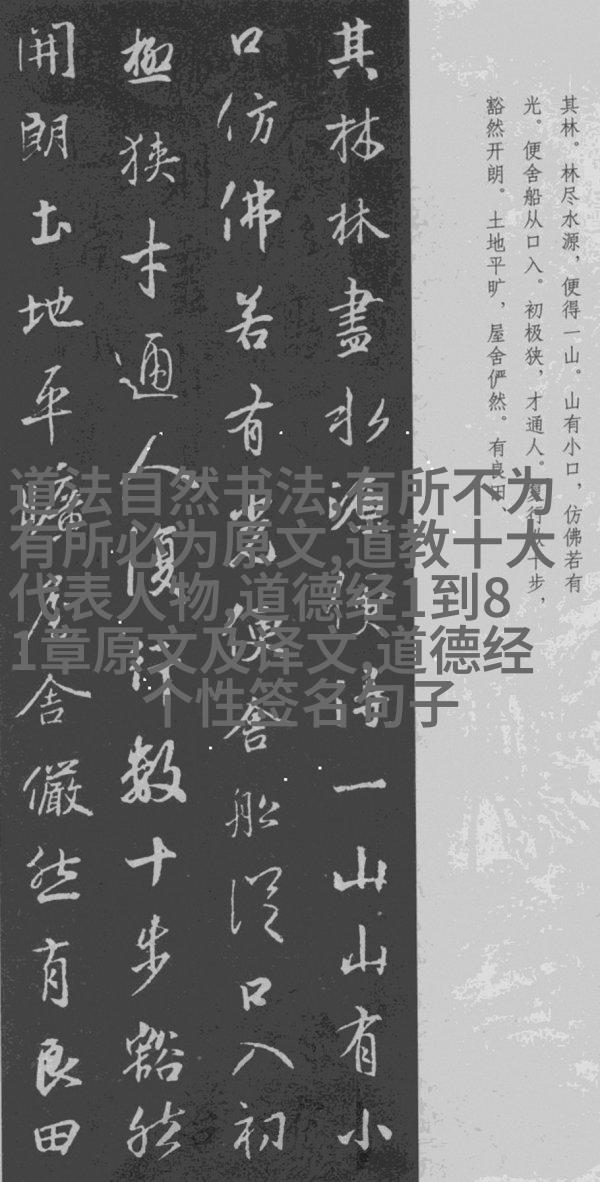 其林。林尽水源，便得一山。山有小口，仿佛若有
光。便舍船从口入。初极狭，才通人。复行数十步，
豁然开朗。土地平旷，屋舍俨然。有良田、
其林林盡水源便得一山山有小
口仿佛若有光便舍船從口入初
極狹才通人復行數十步豁然
開朗土地平曠屋舍儼然有良田
道法自然书法,有所不为
有所必为原文,道教十大
代表人物,道德经1到8
1章原文及译文,道德经
个性签名句子